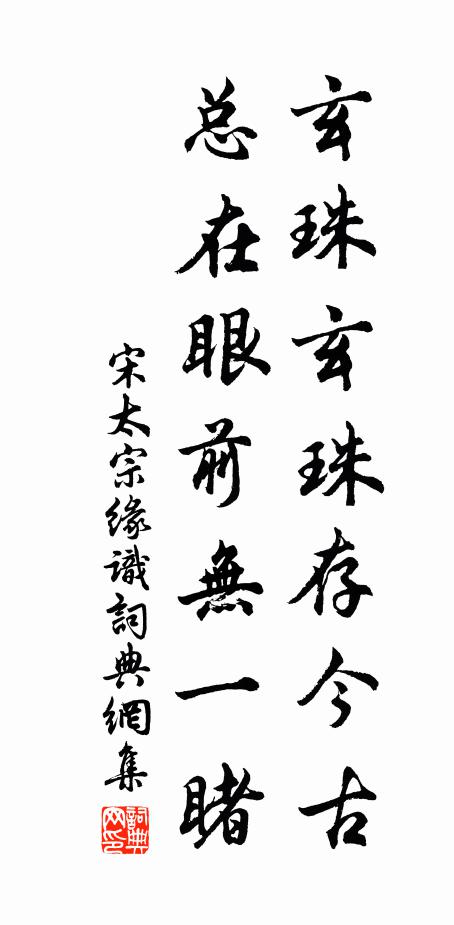 玄珠玄珠存今古
总在眼前無一睹
宋太宗缘識詞典網集
詞典网印